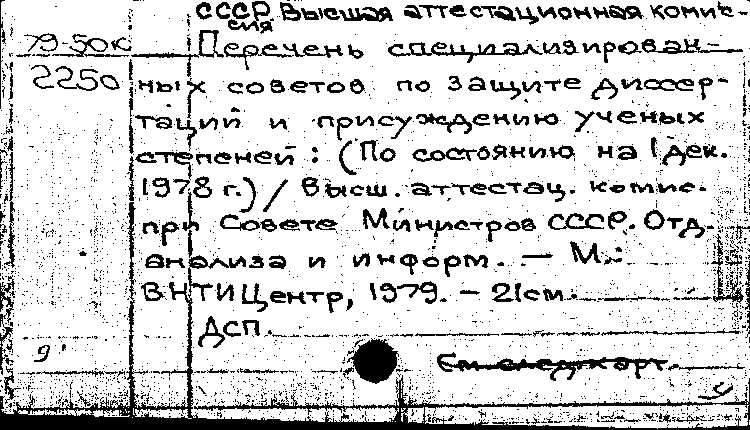 СССР Высшая аттестационная комис-
сия
79-50к Перечень специализирован-
2250 ных советов по защите диссер-
таций и присуждению ученых
степеней : (По состоянию на 1 дек.
1978 г.) / Высш. аттестац. комис.
при Совете Министров СССР. Отд.
анализа и информ. — М.:
ВНТИЦентр, 1979. – 21см.
Дсп.
9'
См. след. карт.